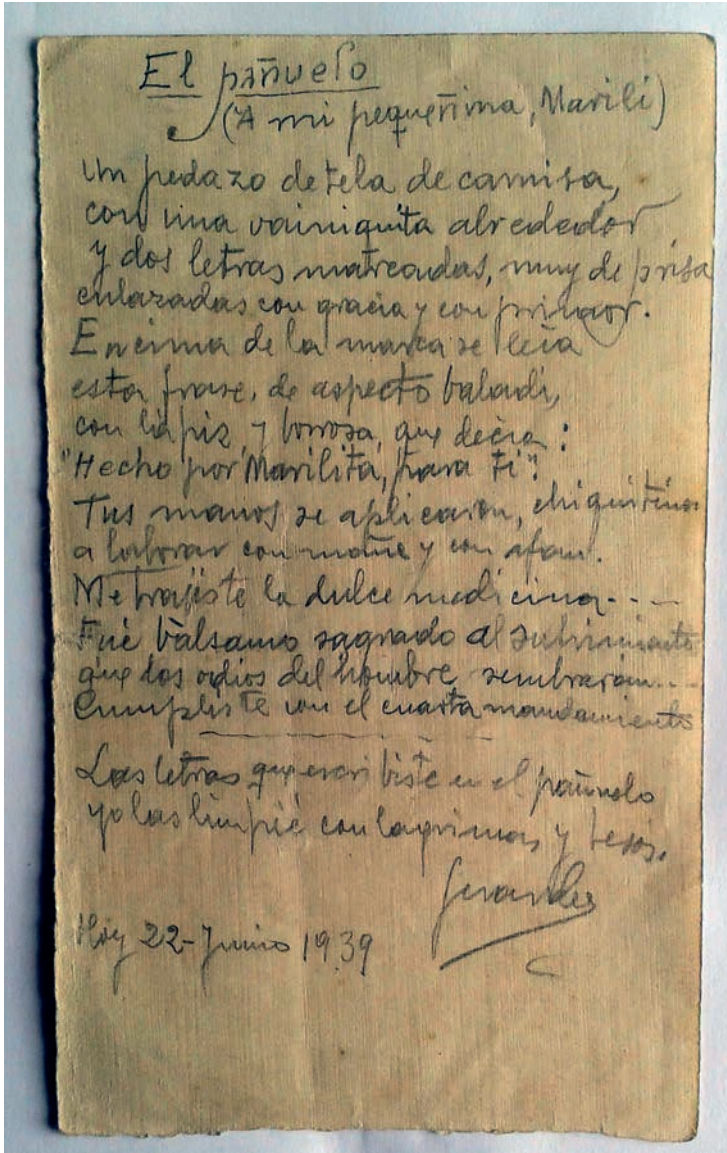 El pañuelo
(A mi pequeñina, Marili)
Un pedazo de tela de camisa,
con una vainiquita alrededor
y dos letras marcadas, muy de prisa
enlazadas con gracia y con primor.
Encima de la marca se leía
esta frase, de aspecto baladí,
con lápiz, y borrosa, que decía:
"Hecho por Marilita, para ti".
Tus manos se aplicaron, chiquitina
a laborar con maña y con afan.
Me trajiste la dulce medicina....
Fué bálsamo sagrado al sufrimiento
que los odios del hombre sembrarán...
Cumpliste con el cuarto mandamiento
Las letras que escribiste en el pañuelo
yo las limpié con lagrimas y besos.
Hoy 22-Junio 1939